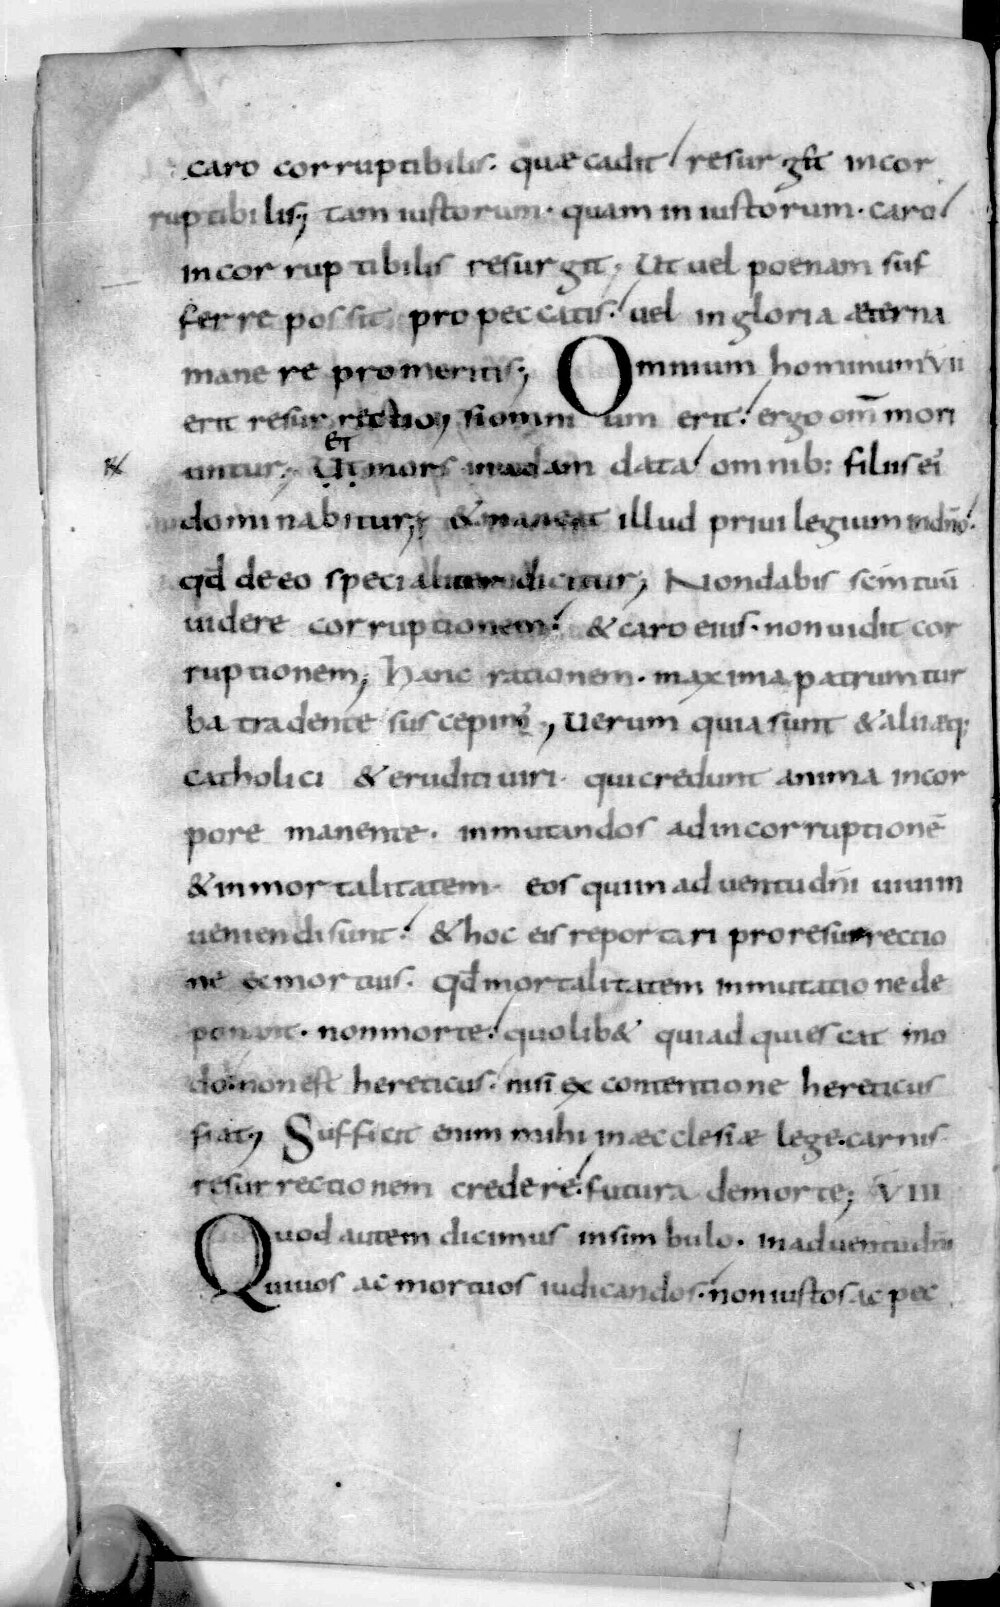 caro corruptibilis. quæ cadit resurgit incor
ruptibilis; tam iustorum. quam iniustorum. caro
incorruptibilis resurgit; Ut uel poenam suf
ferre possit pro peccatis. uel in gloria æterna
manere pro meritis; Omnium hominum VII
erit resurrectio; si omnium erit. ergo om̄ mori
untur; Et
Ut mors ab adam data omnib: filiis ei'
dominabitur; & maneat illud priuilegium in dn̄o.
qd̄ de eo specialiter dicitur; Non dabis sc̄m tuū
uidere corruptionem. & caro eius. non uidit cor
ruptionem; Hanc rationem. maxima patrum tur
ba tradente suscepim'; Uerum quia sunt & alii æq;
catholici & eruditi uiri. qui credunt anima in cor
pore manente. inmutandos ad incorruptionē
& inmortalitatem. eos qui in aduentu dn̄i uiui in
ueniendi sunt. & hoc eis reportari pro resurrectio
ne ex mortuis. qd̄ mortalitatem inmutatione de
ponant. non morte. quolib& qui adquiescat mo
do. non est hereticus. nisi ex contentione hereticus
fiat; Sufficit enim mihi in æcclesiæ lege. carnis
resurrectionem credere. futura de morte; VIII
Quod autem dicimus in simbulo. in aduentu dn̄i
uiuos ac mortuos iudicandos. non iustos ac pec